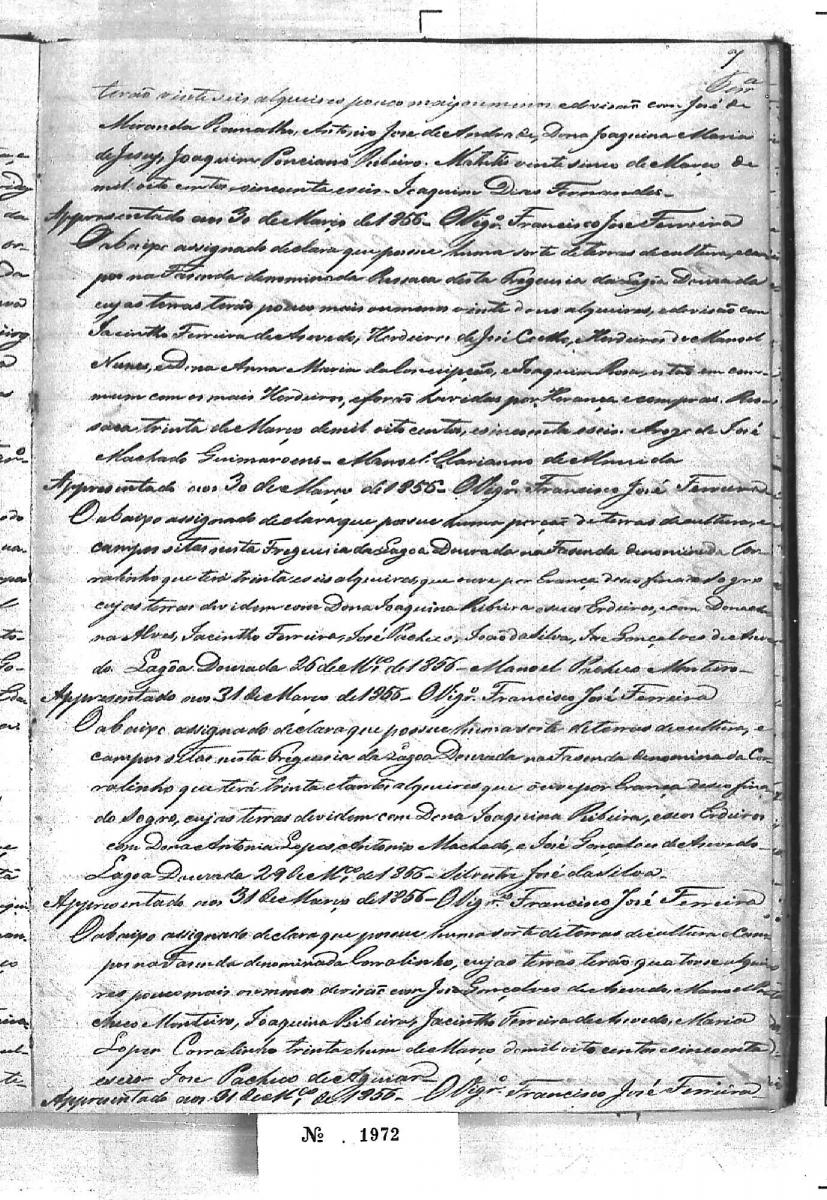 7
Ferrª
terão vinte seis alqueires pouco mais ou menos e devisão com José de
Miranda Ramalho, Antonio Jose de Andrade, Dona Joaquina Maria
de Jesus, Joaquim Ponciano Ribeiro. Matto vinte sinco de Março de
mil oito centos e sincoenta e seis. Joaquim Dias Fernandes.
Appresentado aos 30 de Março de 1856 - O Vigrº. Francisco José Ferreira
O abaixo assignado declara que possue huma sorte de terras de cultura, e cam
pos na Fasenda denominada Ressaca desta Freguesia da Lagôa Dourada
cujas terras terão pouco mais ou menos vinte dous alqueires, e devisão com
Jacintho Ferreira de Asevedo, Herdeiros de José Coelho, Herdeiros de Manoel
Nunes, e Dona Anna Maria da Conceipção, e Joaquim Rosa, estão em com
mum com os mais Herdeiros, e forão havidas por Herança e compras. Res
saca trinta de Março de mil oito centos, e sincoenta e seis. Arogo de José
Machado Guimaroens - Manoel Marianno de Almeida
Appresentado aos 30 de Março de 1856 - O Vigrº. Francisco José Ferreira
O abaixo assignado declara que possue huma porção de terras de cultura, e
campos sitas nesta Freguesia da Lagoa Dourada na Fasenda denominada Cor
ralinho que terá trinta e seis alqueires, que ouve por Erança de seo finado Sogro
cujas terras dividem com Dona Joaquina Ribeira e seus Erdeiros, e com Dona
na Alves, Jacintho Ferreira, José Pacheco, João da Silva, José Gonçalves de Aseve
do. Lagôa Dourada 26 de Mço. de 1856 - Manoel Pacheco Monteiro -
Appresentado aos 31 de Março de 1856 - O Vigrº. Francisco José Ferreira
O abaixo assignado declara que possue huma sorte de terras de cultura, e
campos sitas nesta Freguesia da Lagôa Dourada na Fasenda denominada Cor
ralinho que terá trinta e tantos alqueires que ouve por Erança de seo fina
do Sogro, cujas terras dividem com Dona Joaquina Ribeira, e seos Erdeiros
com Dona Antonia Lopes, Antonio Machado, e José Gonçalves de Asevedo -
Lagoa Dourada 29 de Mço. de 1856 - Silvestre José da Silva -
Appresentado aos 31 de Março de 1856 - O Vigrº. Francisco José Ferreira
O abaixo assignado declara que possue huma sorte de terras de cultura e cam
pos na Fasenda denominada Corralinho, cujas terras terão quatorse alquei
res pouco mais ou menos devisão com José Gonçalves de Asevedo, Manoel Pa
checo Monteiro, Joaquina Ribeira, Jacintho Ferreira de Asevedo, Maria
Lopes Corralinho trinta e hum de Março de mil oito centos e sincoenta
e seis Jose Pacheco de Aguiar -
Appresentado aos 31 de Mço. de 1856 - O Vigrº. Francisco José Ferreira
Nº 1972